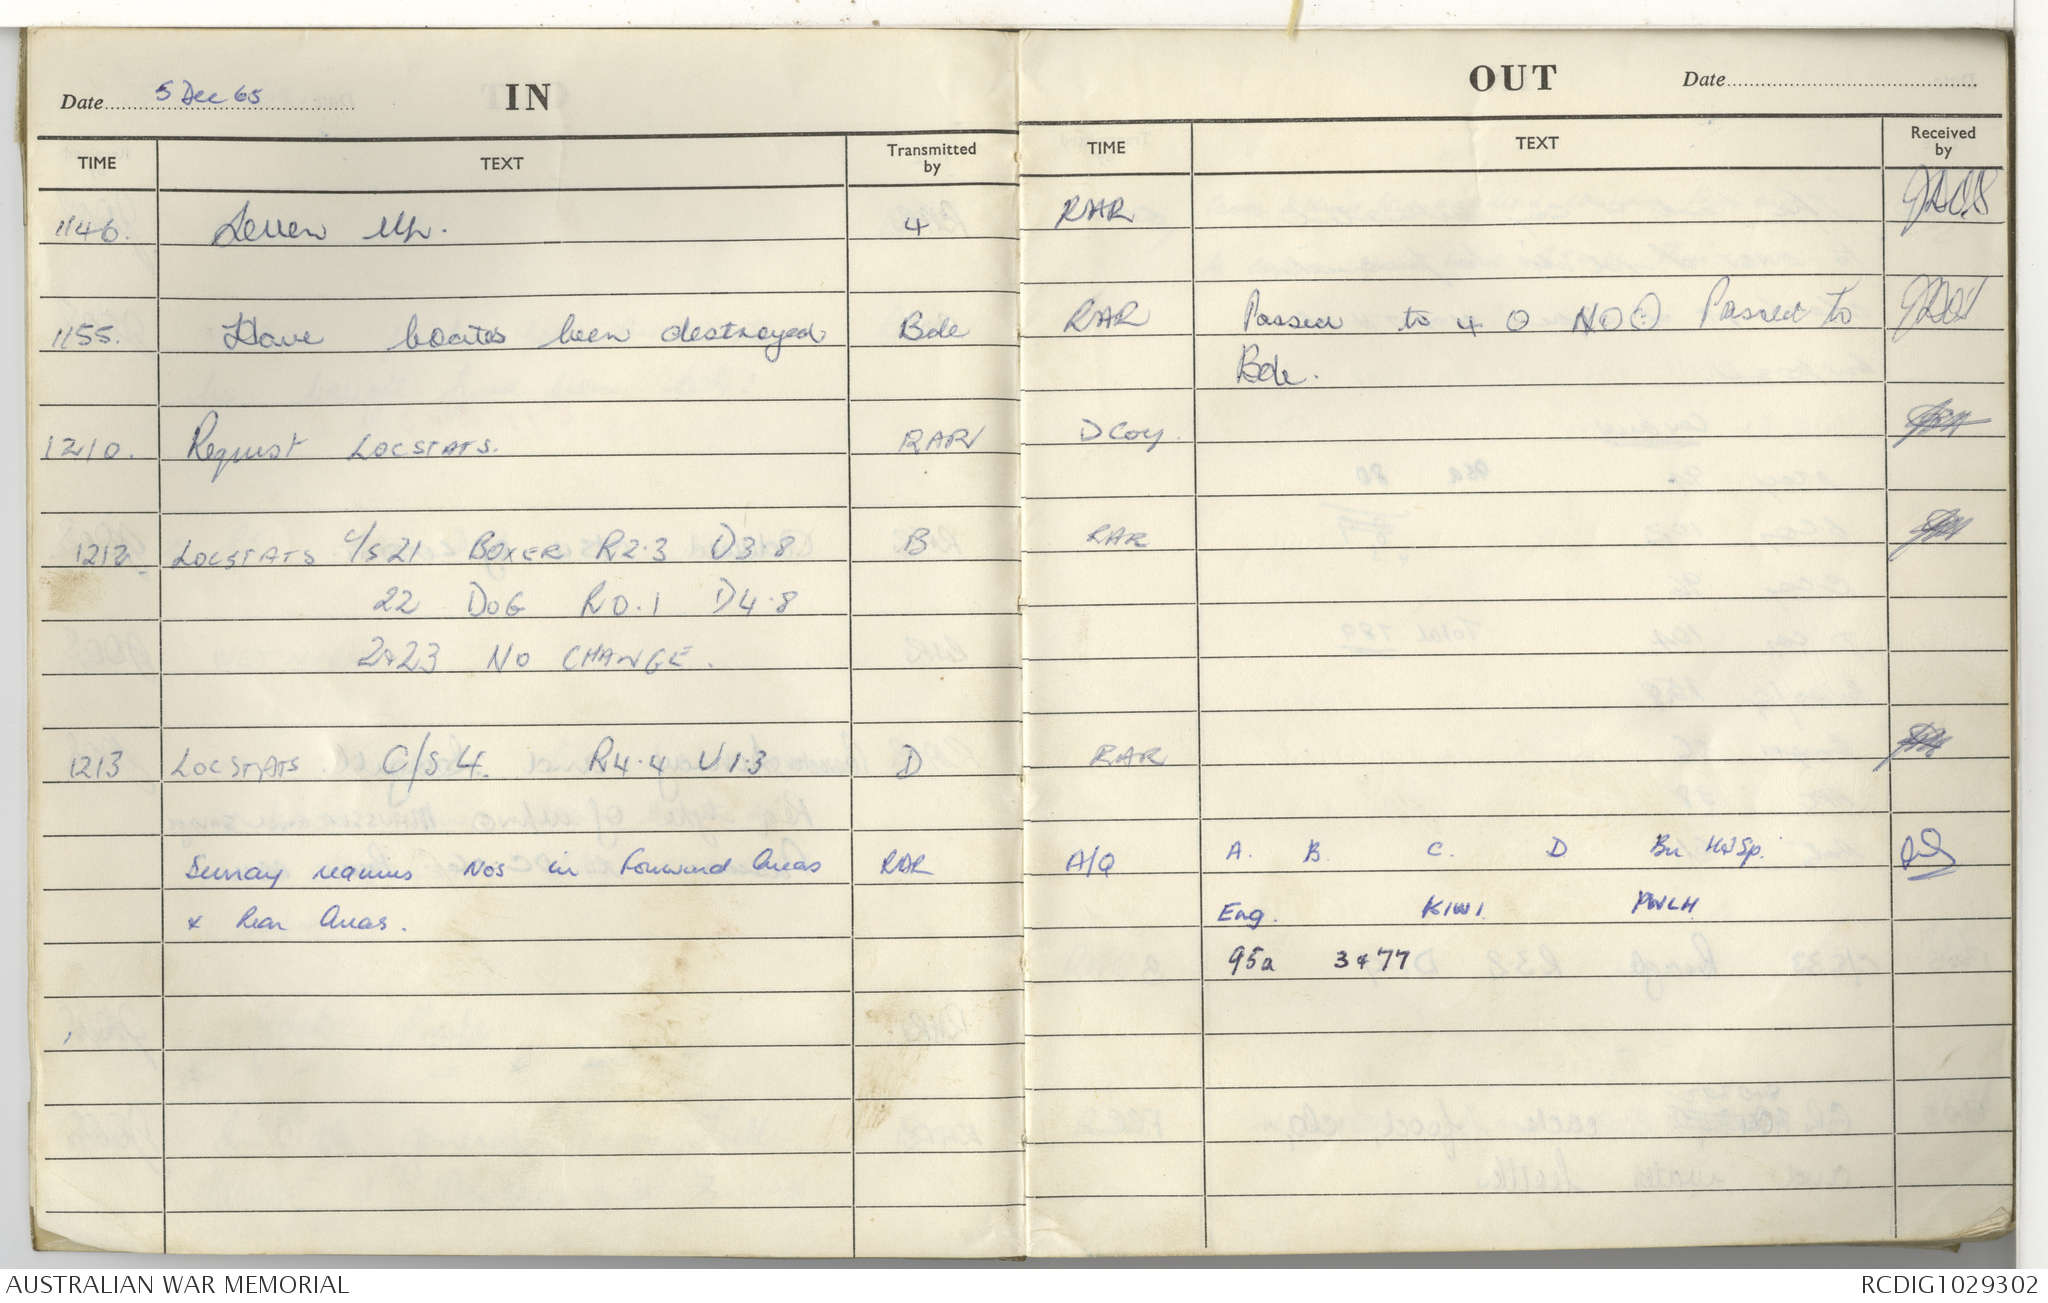 Date 5 Dec 65 IN
TIME TEXT Transmitted by
1146. Seven Up. 4
1155. Have boats been destroyed Bde
1210. Request LOCSTATS. RAR
1212 LOCSTATS C/S 21 BOXER R2.3 D3.8 B
22 DOG R0.1 D4.8
2&23 NO CHANGE.
1213 LOCSTATS. C/S 4. R4.4 U1.3 D
Sunray requires Nos in Forward Areas RAR
& Rear Areas.
OUT Date
TIME TEXT Received by
RAR
RAR Passed to 4 NO Passed to
Bde.
D Coy.
RAR
RAR
A/Q A. B. C. D Bn HQ Sp.
Eng. KIWI PWLH
95a 3&77
AUSTRALIAN WAR MEMORIAL RCDIG1029302